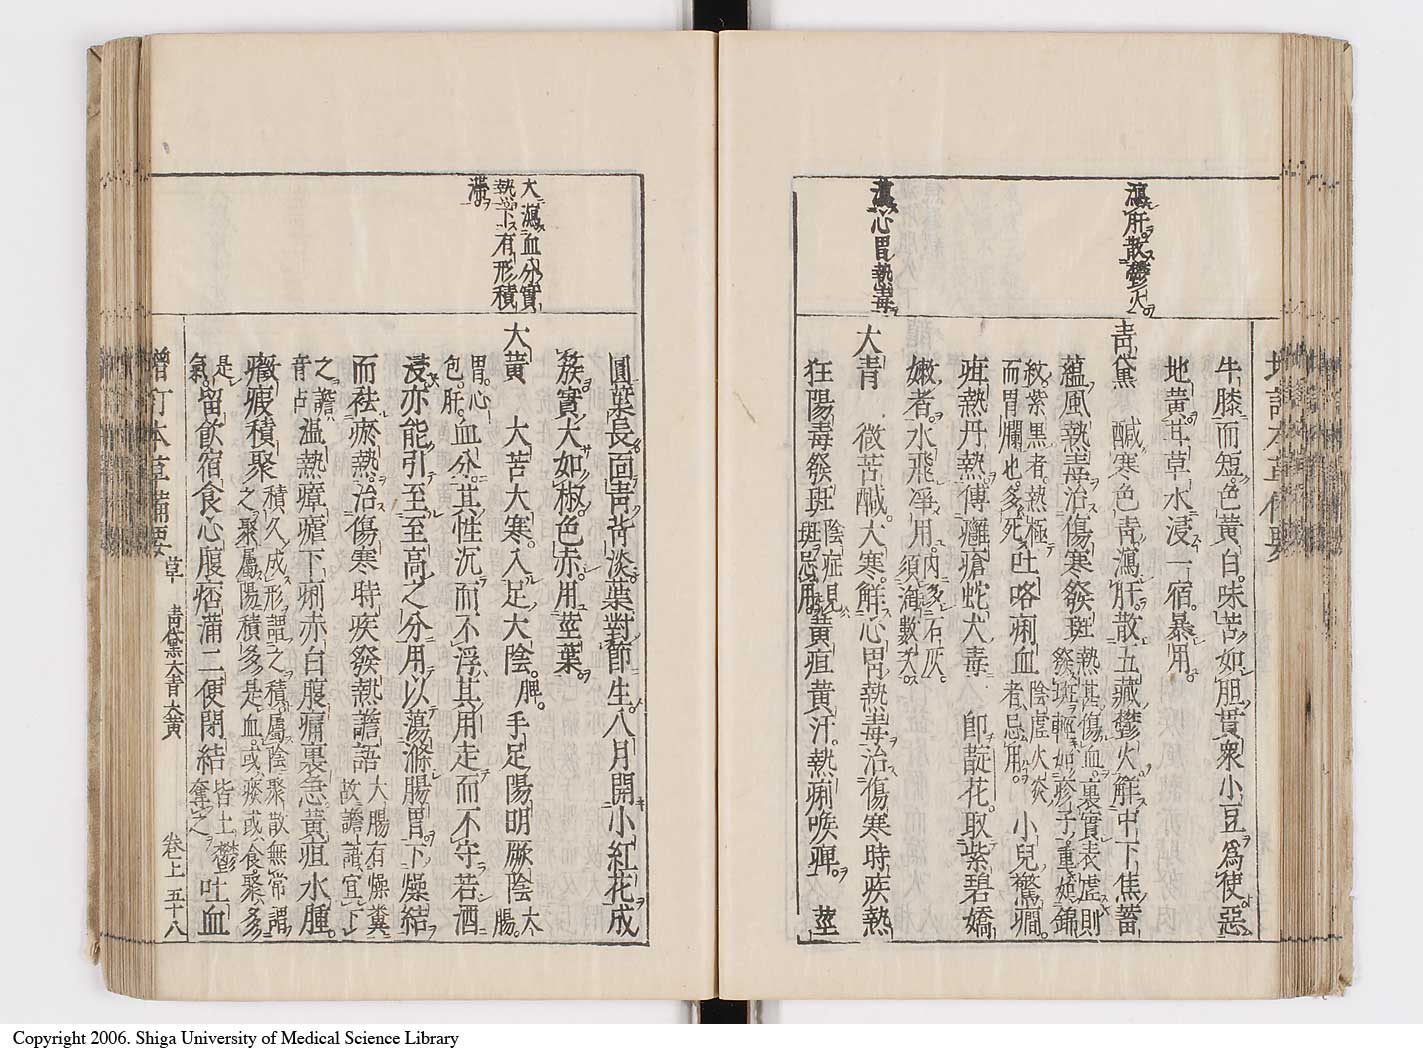 瀉肝散鬱火
瀉心胃熱毒
牛膝而短。色黃白。味苦如胆。貫衆小豆爲使惡
地黃。甘草水浸一宿暴用。
青黛 鹹寒色青瀉肝。散五藏鬱火解中下焦蓄
蘊風熱毒治傷寒發斑
熱甚傷血。裏實表虛則
發斑。輕如疹子。重如錦
紋。紫黑者。熱極
而胃爛也。多死
吐咯痢血
陰虛火炎
者。忌用。
小兒驚癇。
疳熱丹熱。傅癰瘡蛇犬毒 卽靛花。取紫碧嬌
嫩者。水飛凈用。
內多石灰。
須淘數次。
大青 微苦鹹。大寒。解心胃熱毒治傷寒時疾熱
狂陽毒發斑
陰症見
斑忌用
黃疸黃汗。熱痢喉痺。 莖
大瀉血分實
熱下有形積
滯
圓葉長面青背淡葉對節生。八月開小紅花成
簇實大如椒色赤。用莖葉
大黃 大苦大寒。入足太陰。
脾。
手足陽明厥陰
大
腸。
胃。心
包。肝。
血分。其性沉而不浮。其用走而不守若酒
浸亦能引至至高之分用以蕩滌腸胃。下燥結
而祛瘀熱。治傷寒時疾發熱譫語
大腸有燥糞
故譫語宜下
之。譫
音占
温熱瘴瘧下痢赤白腹痛裏急黃疸水腫。
癥瘕積聚
積久成形謂之積屬陰聚散無常謂
之聚屬陽積多是血。或瘀或食聚多
是
氣。
留飲宿食心腹痞滿二便閉結
皆土鬱
奪之
吐血
增訂本草備要 草 青黛大青大黃 卷上 五十八